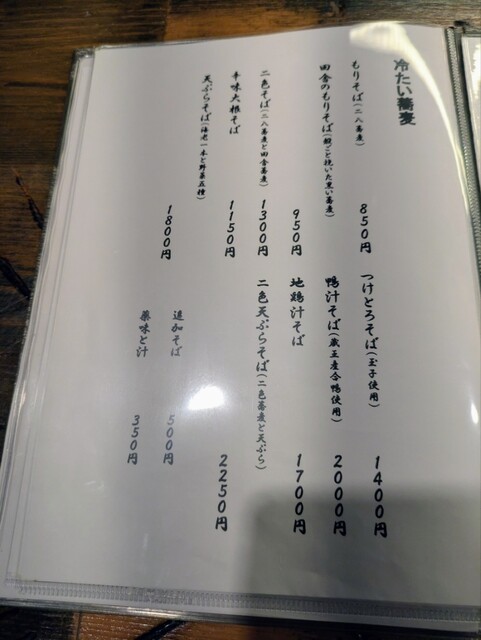 冷たい蕎麦
もりそば(二八蕎麦)
850円
田舎のもりそば(殻ごと挽いた黒い蕎麦)
950円
二色そば(二八蕎麦と田舎蕎麦)
1300円
辛味大根そば
1150円
天ぷらそば(海老一本と野菜五種)
1800円
つけとろそば(玉子使用)
1400円
鴨汁そば(蔵王産合鴨使用)
2000円
地鶏汁そば
1700円
二色天ぷらそば(二色蕎麦と天ぷら)
2250円
追加そば
500円
薬味と汁
350円